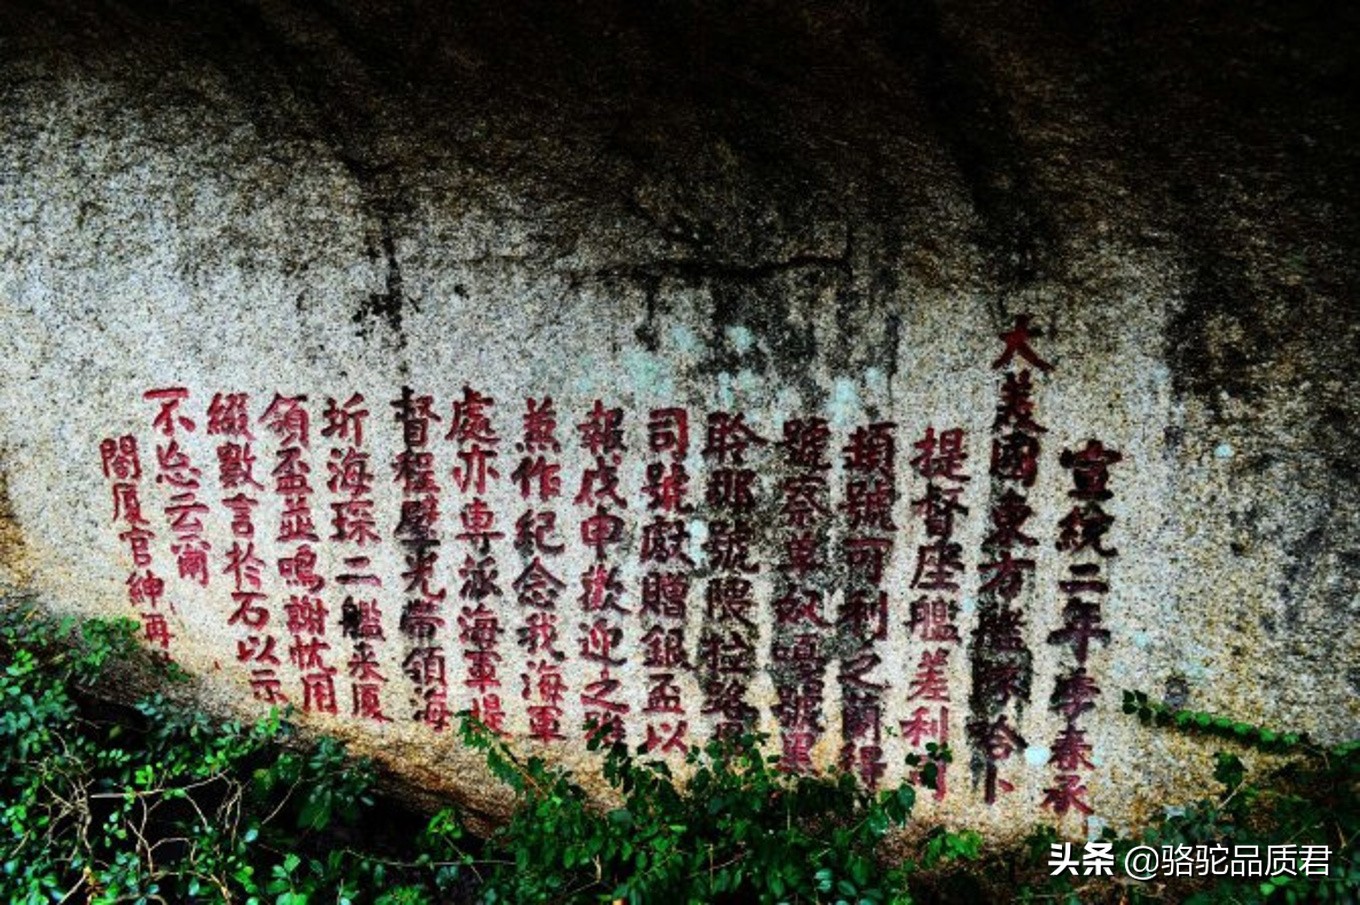 宣統二年季春承
大美國東方艦隊哈卜
提督座艦差利
類號可利之蘭得
號察單奴鳴號
聆那號隈拉路
司號獻贈銀盃以
報戊申歡迎之
兼作紀念我海軍
處亦專派海軍提
督程璧光帶領海
圻海琛二艦来厦
領盃並鳴謝忱用
綴數言於石以示
不忘云爾
閤厦官紳再
头条 @骆驼品质君